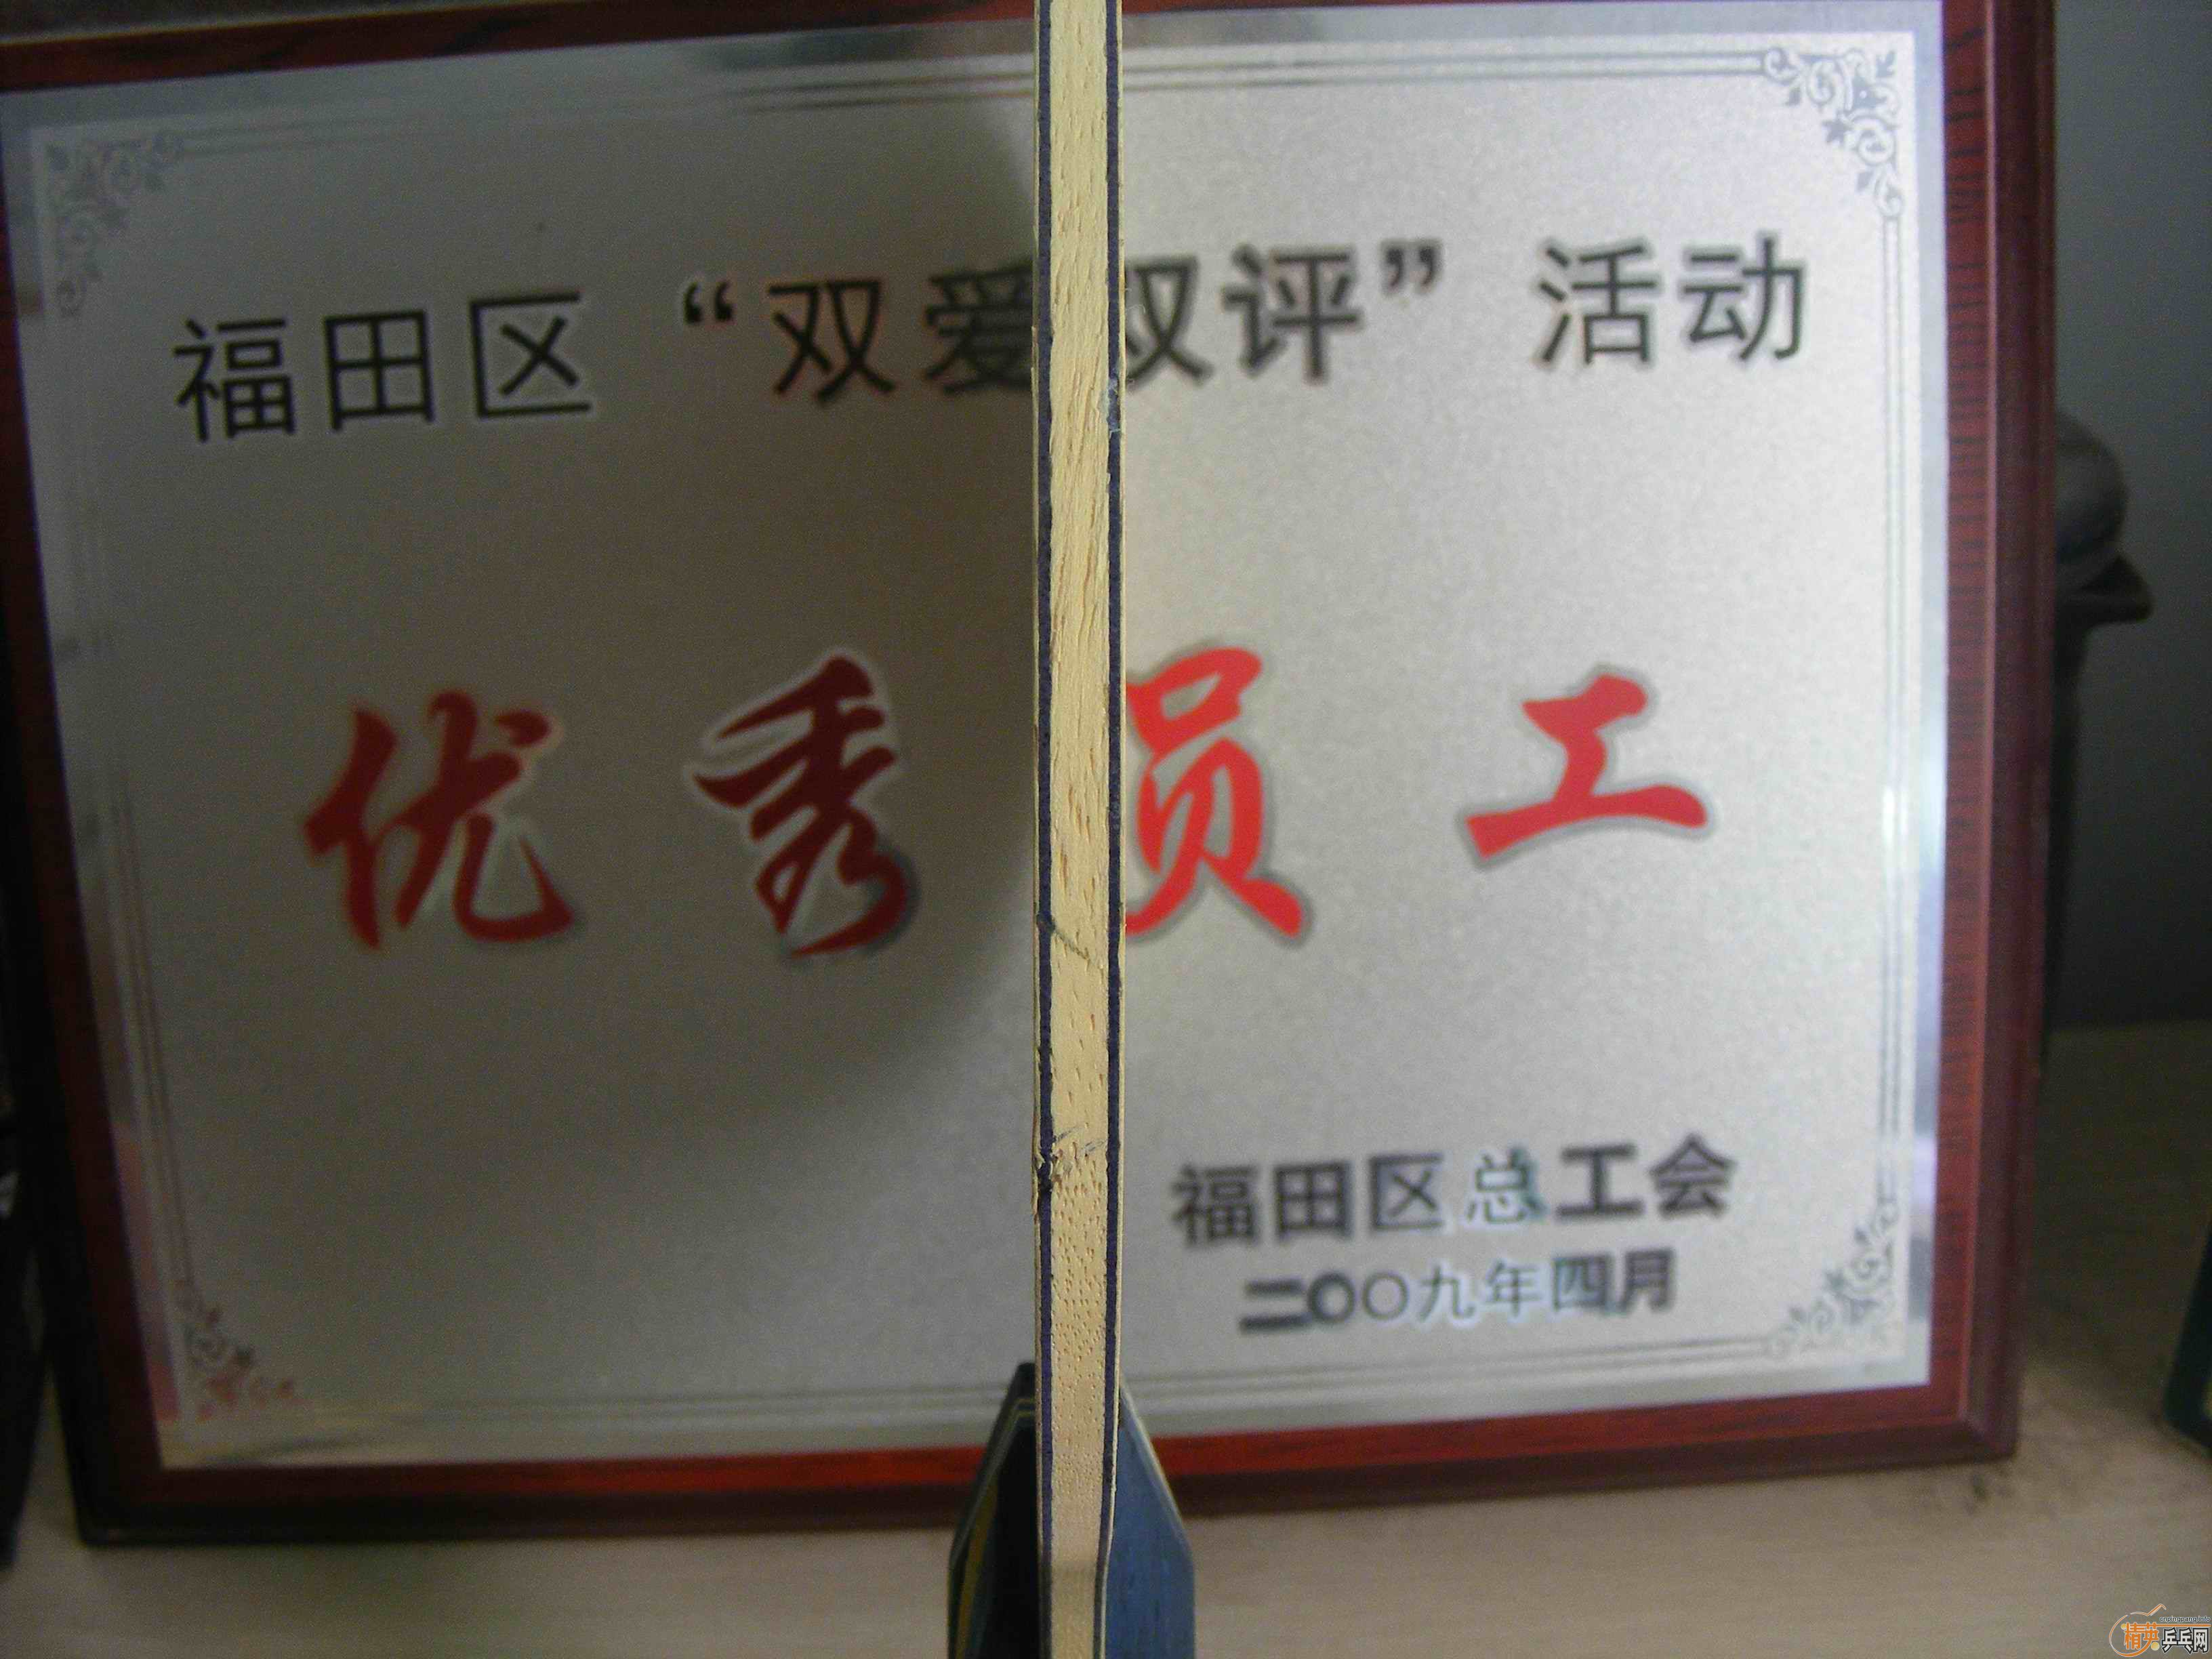 福田区“双爱双评”活动
优秀员工
福田区总工会
二〇〇九年四月
精英乒乓网